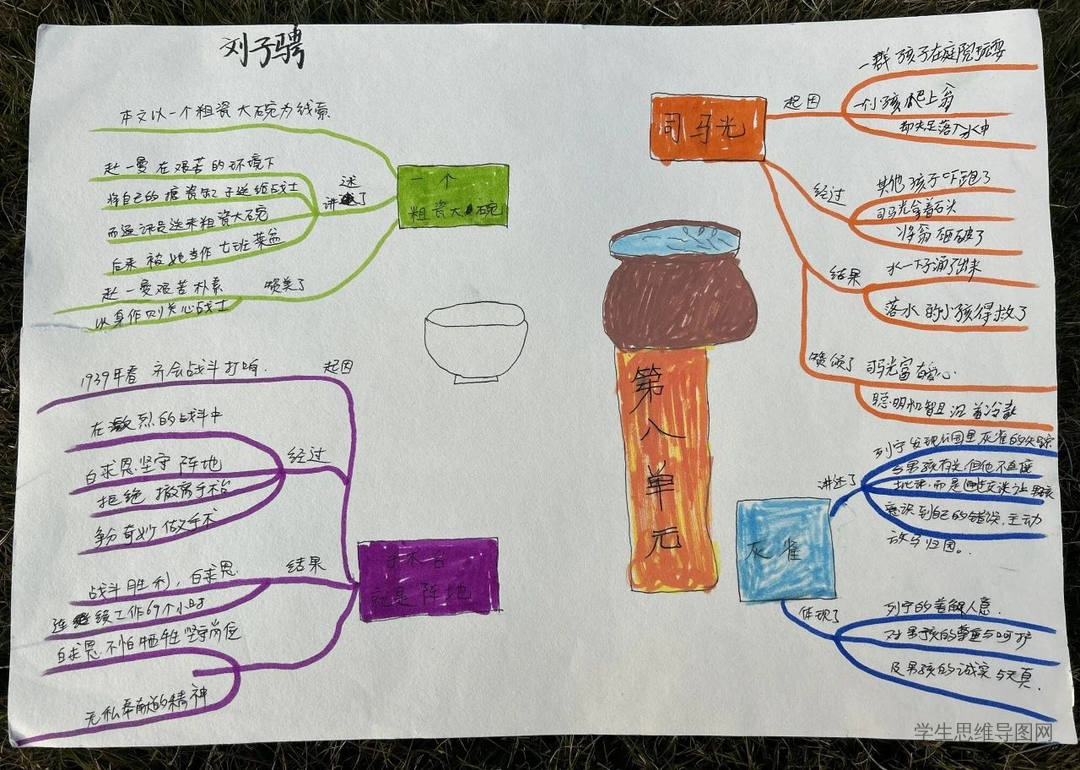 刘子骋
本文以一个粗瓷大碗为线索
一个
粗瓷大碗
讲述了
赵一曼在艰苦的环境下
将自己的搪瓷缸子送给战士
而通讯员送来粗瓷大碗
后来被她当作七班菜盆
赞美了
赵一曼艰苦朴素
以身作则关心战士
手术台
就是阵地
起因
1939年春 齐会战斗打响.
经过
在激烈的战斗中
白求恩坚守阵地
拒绝撤离手术台
争分夺妙做手术
结果
战斗胜利,白求恩
连续工作69个小时
白求恩不怕牺牲坚守岗位
无私奉献的精神
第八单元
司马光
起因
一群孩子在庭院玩耍
一个小孩爬上瓮
却失足落入水中
经过
其他孩子吓跑了
司马光拿着石头
将瓮砸破了
结果
水一下子涌了出来
落水的小孩得救了
赞颂了
司马光富有爱心
聪明机智且沉着冷静
灰雀
讲述了
列宁发现公园里灰雀的失踪
与男孩有关但他不直接
批评.而是通过交谈让男孩
意识到自己的错误.主动
放鸟归园。
体现了
列宁的善解人意.
对男孩的尊重与呵护
及男孩的诚实与天真.
学生思维导图网